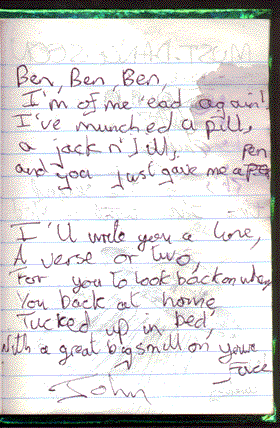 Ben, Ben, Ben,
I'm of me 'ead again!
I've munched a pill,
a jack n' Jill,
pen
and you just gave me a
I'll write you a line,
A verse or two,
For you to look back on when
You back at home,
Tucked up in bed,
With a great big smill on your
face
John